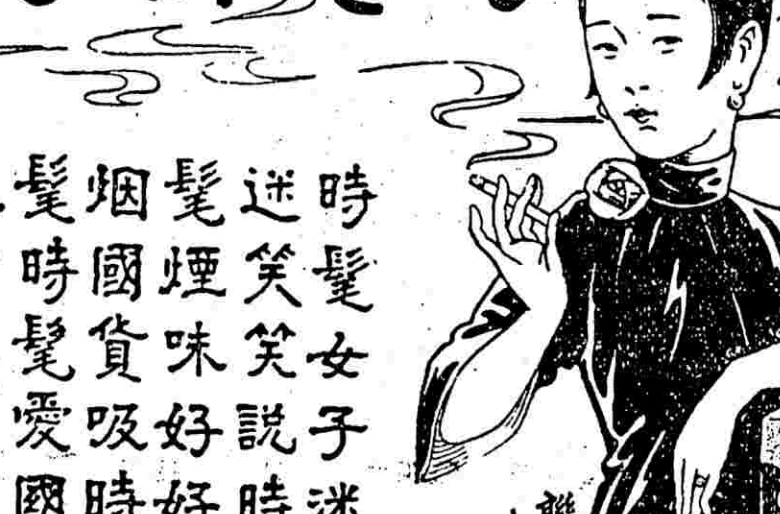 時髦女子迷
迷笑笑說時
髦煙味好好
烟國貨吸時
髦時髦愛國